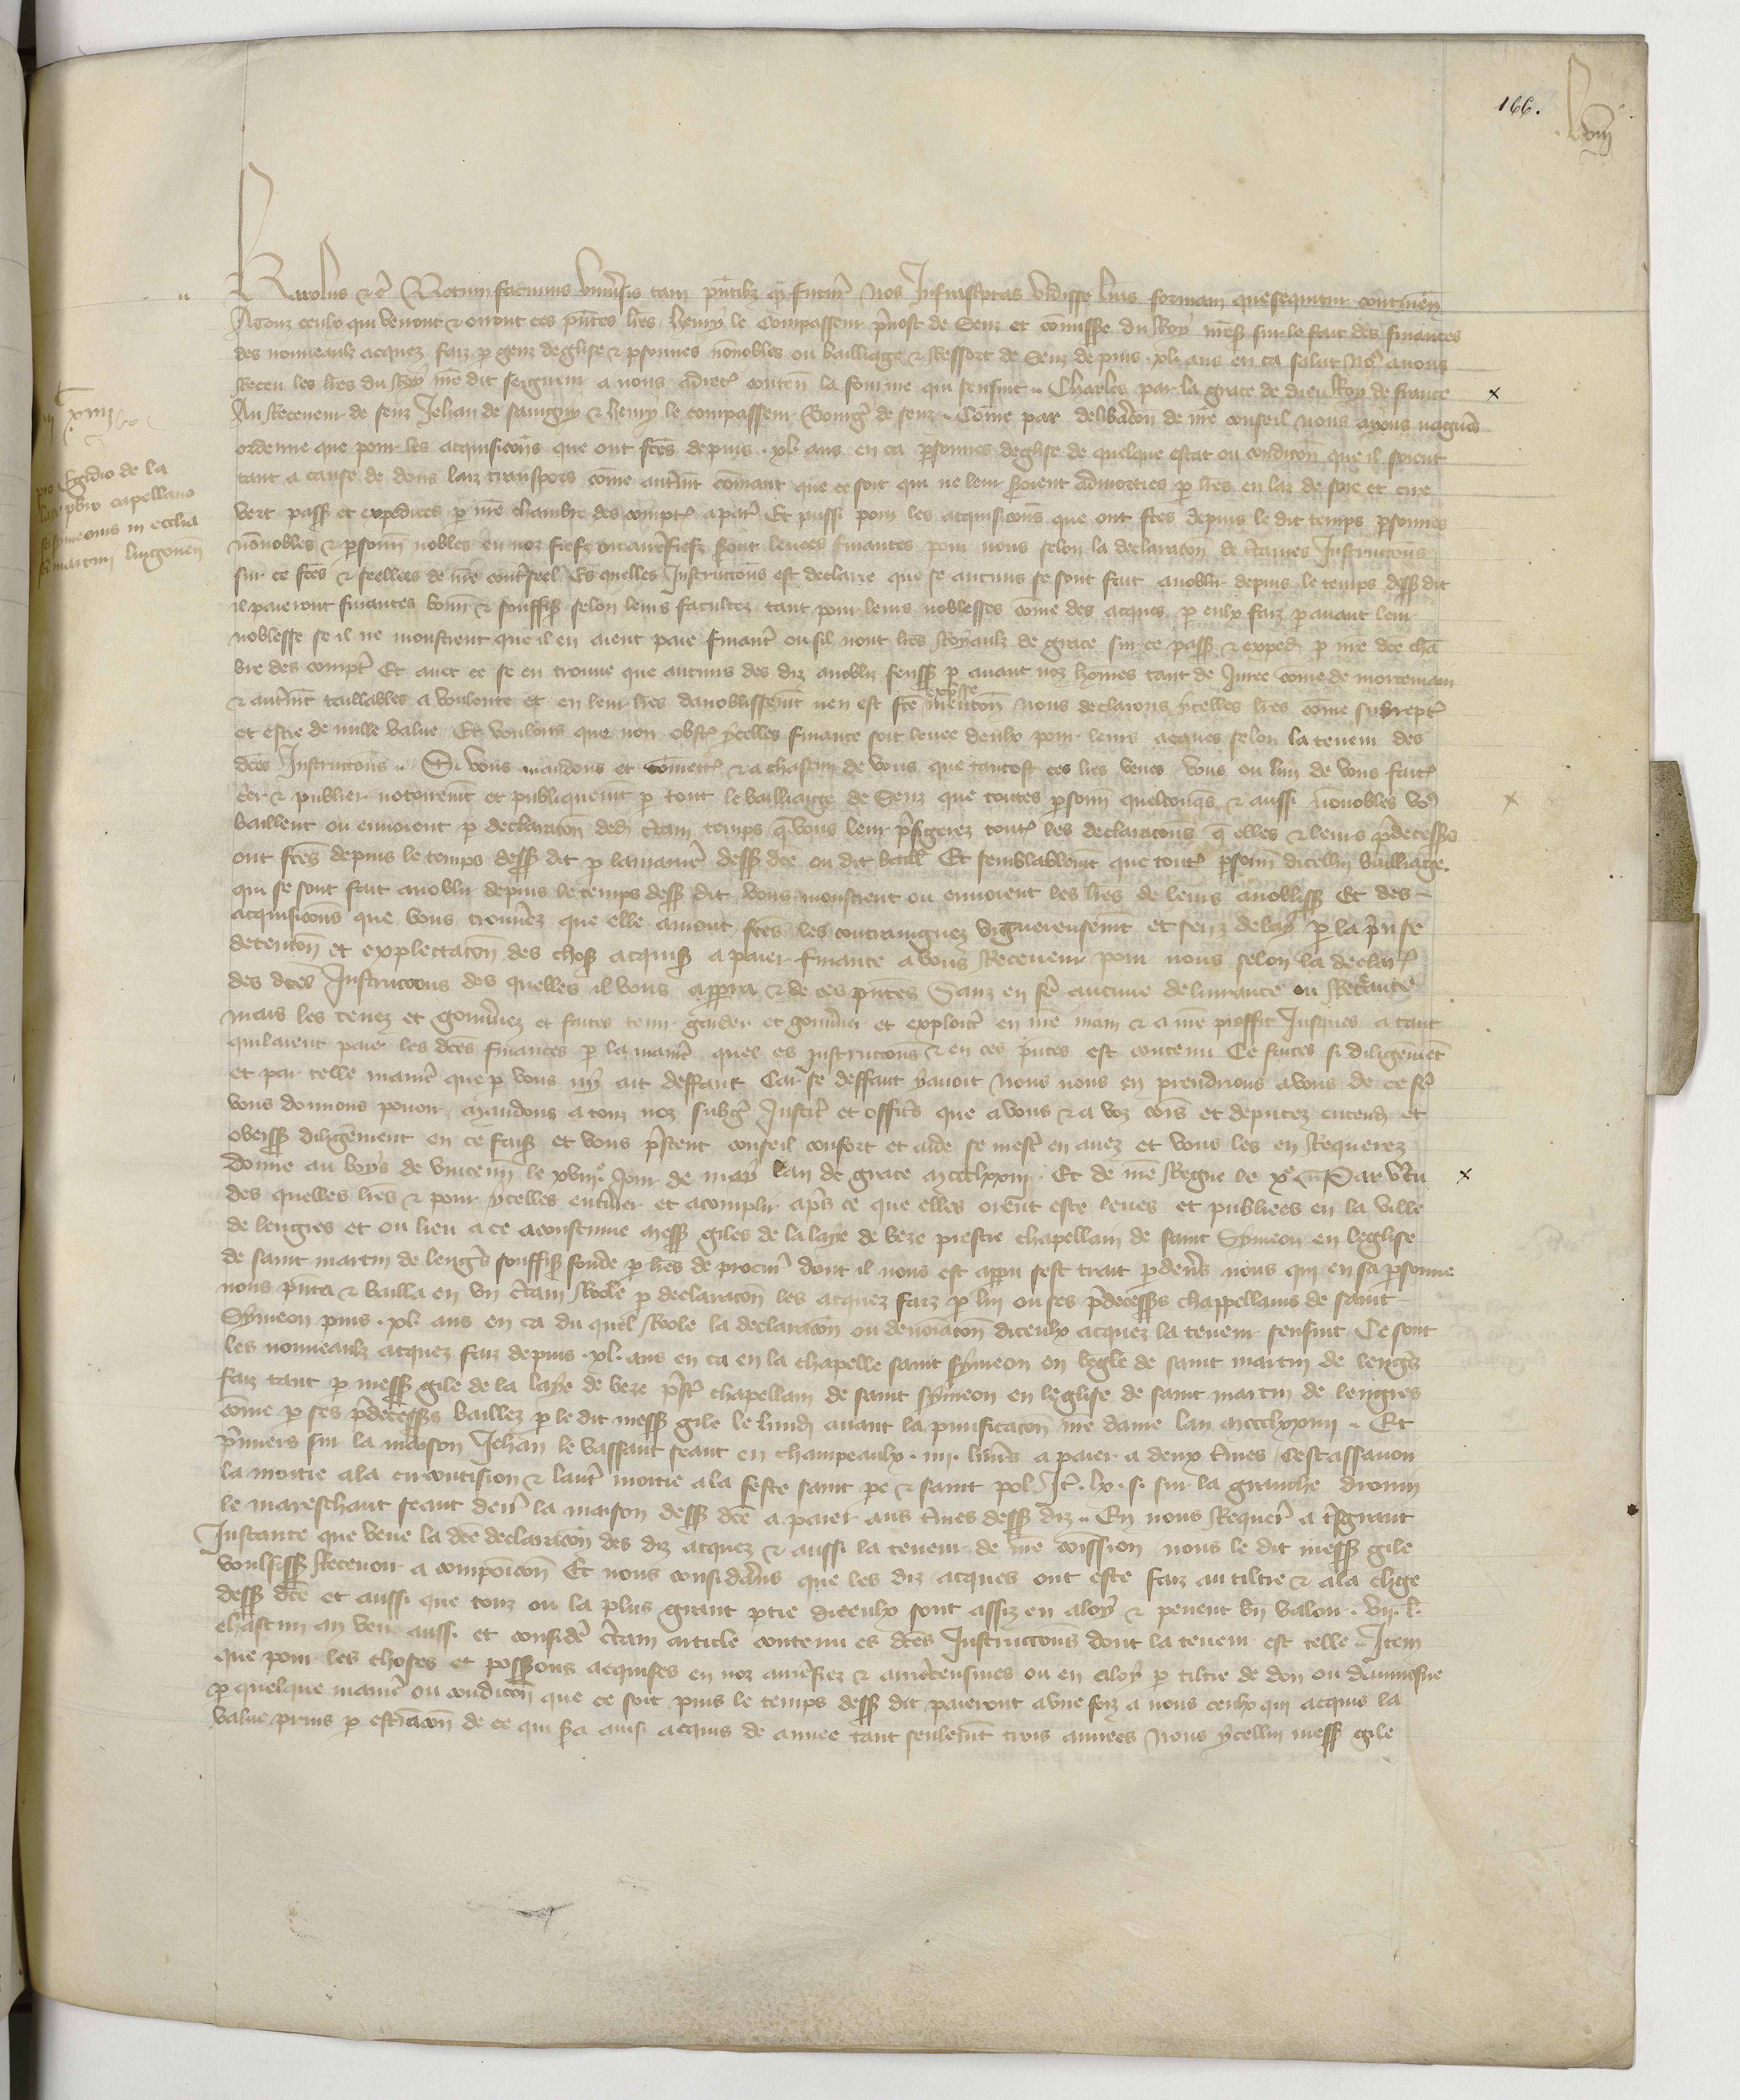 166.
Karolus etc̃ Notum facimus uniṽsis tam p̃ntibz q̃ futur̃ Nos Infrasc̃ptas vidisse lr̃as formam que sequitur continen̄
A touz ceulx qui verront & orront ces p̃ntes lr̃es henry le Compasseur p̃uost de Senz et com̃iss̃e du Roy nr̃e sire sur le fait des finances
des nouueaulx acquez faiz p genz deglise & p̃sonnes nõnobles ou bailliage & Ressort de Senz depuis .xl. ans en ca salut No9 auons
Receu les lr̃es du Roy nr̃e dit seigneur a nous adrec̃ conten̄ la fourme qui sensuit .. Charles par la grace de dieu Roy de france
Au Receueur de senz Jehan de sauigny & henry le compasseur Bourg̃ de senz . Cõme par delib̃acõn de nr̃e conseil nous ayons nagueres
ordenne que pour les acquisicõns que ont fc̃es depuis .xl. ans en ca p̃sonnes deglise de quelque estat ou condicõn que il soient
tant a cause de dons laiz transpors cõme autrem̃t cõmant que ce soit qui ne leur seroient admorties p lr̃es en laz de soie et cire
vert pass̃ et expediees p nr̃e chambre des compt̃ a paris Et aussi pour les acquisicõns que ont fc̃es depuis le dit temps p̃sonnes
nõnobles & p̃sonn̄ nobles en noz fiefz ou arrefiefz seront leuees finances pour nous selon la declaracõn de certaines Instruccõns
sur ce fc̃es & seellees de nr̃e contreseel Es quelles Instruccõns est declaire que se aucuns se sont fait anoblir depuis le temps dess̃ dit
il paieront finances bonn̄ & souffis̃ selon leurs facultez tant pour leurs noblesses cõme des acques p eulx faiz p auant leur
noblesse se il ne monstrent que il en aient paie financ̃ ou sil nont lr̃es Royaulx de grace sur ce pass̃ & exped̃ p nr̃e dc̃e chã
bre des compt̃ Et auec ce se en treuue que aucuns des diz anobliz feuss̃ p auant noz hõmes tant de Juree cõme de mortemain
& autrem̃t taillables a voulente et en leur lr̃es danoblissem̃t nen est fc̃e exp̃sse mencõn Nous declairons ycelles lr̃es cõme surrept̃
et estre de nulle value Et voulons que non obst̃ ycelles finance soit leuee deulx pour leurs acques selon la teneur des
dc̃es Instruccõns .. Si vous mandons et cõmett̃ & a chascun de vous que tantost ces lr̃es veues vous ou lun de vous fait̃
c̃er & publier notoirem̃t et publiquem̃t p tout le bailliage de Senz que toutes p̃sonn̄ quelconq̃s & aussi nõnobles vo9
baillent ou enuoient p declaracõn dedens certain temps q̃ vous leur p̃figerez tout̃ les declaracõns q̃ elles & leurs p̃decess̃s
ont fc̃es depuis le temps dess̃ dit p la manier̃ dess̃ dc̃e ou dit baill̃ Et semblablem̃t que tout̃ p̃sonn̄ dicellui bailliage
qui se sont fait anoblir depuis le temps dess̃ dit vous monstrent ou enuoient les lr̃es de leurs anobliss̃ Et des
acquisicõns que vous trouuerez que elle auront fc̃es les contraingnez viguereusem̃t et senz delay p la prinse
detencõn et explectacõn des chos̃ acquis̃ a paier finance a vous Receueur pour nous selon la declar̃
des dc̃es Instruccõns des quelles il vous apperra & de ces p̃ntes Sanz en fẽ aucune deliurance ou Recreance
mais les tenez et gouũnez et faites tenir garder et gouũner et exploitier en nr̃e main & a nr̃e proffit Jusques a tant
quil aient paie les dc̃es finances p la manier̃ quel es instruccõns & en ces p̃ntes est contenu Ce faites si diligẽmẽt
et par telle manier̃ que p vous ny ait deffaut Car se deffaut y auoit Nous nous en prendrions a vous De ce fẽ
vous donnons pouoir Mandons a touz noz subgiez Justic̃ et offic̃s que a vous & a voz cõis et deputez entend̃ et
obeiss̃ diligẽment en ce fais̃ et vous p̃stent conseil confort et aide se mest̃ en auez et vous les en Requerez
Donne au boys de vincenn̄ le xviij.e Jour de may lan de grace mccclxxiij Et de nr̃e Regne le x.e Par v̈tu
des quelles lr̃es & pour ycelles enterin̄er et acomplir ap̃s ce que elles orent este leues et publiees en la ville
de lengres et ou lieu a ce acoustume Mess̃ giles de la laye de beze prestre chapellain de saint Symeon en leglise
de saint martin de lengr̃s souffis̃ fonde p lr̃es de procur̃ dont il nous est appu sest trait p deuers nous qui en sa p̃sonne
nous p̃nta & bailla en vn certain Role p declaracõn les acquez faiz p lui ou ses p̃decess̃s chappellains de saint
Symeon puis .xl. ans en ca du quel Role la declaracõn ou denoiacõn diceulx acquez la teneur sensuit Ce sont
les nouueaulx acquez faiz depuis .xl. ans en ca en la chapelle saint symeon en leglĩe de saint martin de lengr̃s
faiz tant p mess̃ gile de la laye de beze p̃stre chapellain de saint symeon en leglise de saint martin de lengres
cõme p ses p̃decess̃s baillez p le dit mess̃ gile le lundi auant la purificacõn nr̃e dame lan mccclxxiiij .. Et
p̃miers sur la maison Jehan le vassaut seant en champeaulx .iiij. liures a paier a deux t̃mes Cest assauoir
la moitie a la circoncision & lautre moitie a la feste saint pe & saint pol It̃ .lx. s. sur la granche drouin
le mareschaut seant derr̃ la maison dess̃ dc̃e a paier aus t̃mes dess̃ diz .. En nous Requer̃ a t̃sgrant
Instance que veue la dc̃e declaracõn des diz acquez & aussi la teneur de nr̃e cõission nous le dit mess̃ gile
voulsiss̃ Receuoir a composicõn Et nous considerans que les diz acques ont este faiz au tiltre & a la chg̃e
dess̃ dc̃e et aussi que touz ou la plus grant p̃tie diceulx sont assiz en aloy & peuent bñ valoir .vij. l.
chascun an veu aussi et consider̃ certain article contenu es dc̃es Instruccõns dont la teneur est telle .. Item
que pour les choses et possess̃ons acquises en noz arrefiez & arrecensiues ou en aloy p tiltre de don ou daumosne
p quelque manier̃ ou condicõn que ce soit puis le temps dess̃ dit paieront a vne foiz a nous ceulx qui acquis la
value prins p estimacõn de ce qui sera ainsi acquis de annee tant seulem̃t trois annees Nous ycellui mess̃ gile
pro Egidio de la
laye pbr̃o capellano
sc̃i symeonis in eccl̃ia
sc̃i martini lingonen̄